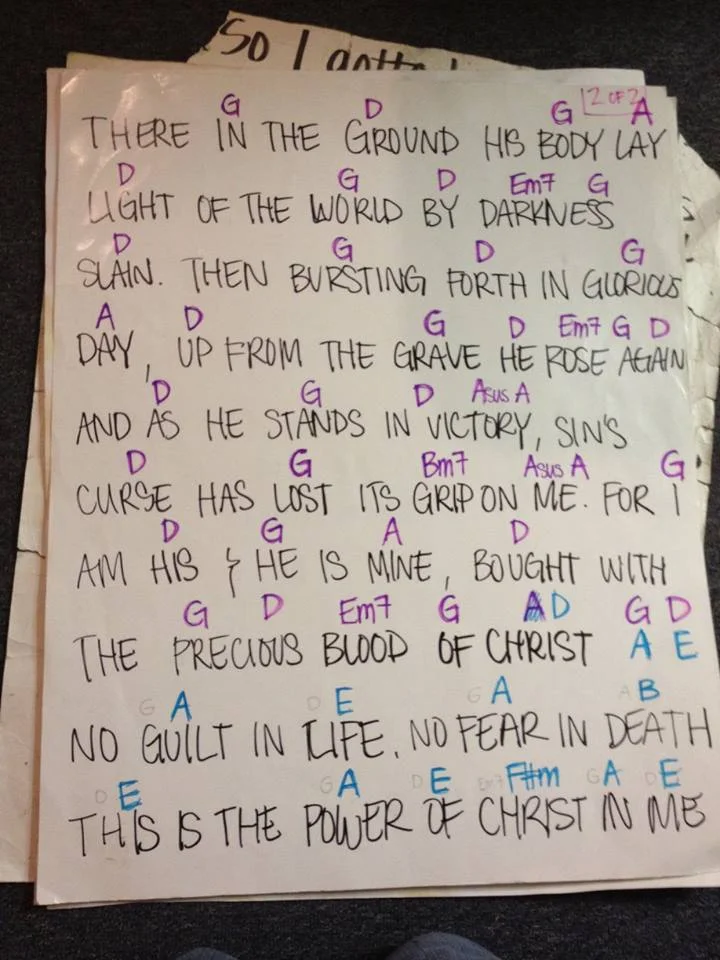 So I gotta
2 OF 2
G D G A
THERE IN THE GROUND HIS BODY LAY
D G D Em7 G
LIGHT OF THE WORLD BY DARKNESS
D G D G
SLAIN. THEN BURSTING FORTH IN GLORIOUS
A D G D Em7 G D
DAY, UP FROM THE GRAVE HE ROSE AGAIN
D G D Asus A
AND AS HE STANDS IN VICTORY, SIN'S
D G Bm7 Asus A G
CURSE HAS LOST ITS GRIP ON ME. FOR I
D G A D
AM HIS & HE IS MINE, BOUGHT WITH
G D Em7 G A D G D
THE PRECIOUS BLOOD OF CHRIST A E
G A D E G A A B
NO GUILT IN LIFE, NO FEAR IN DEATH
D E G A D E Em7 F#m G A D E
THIS IS THE POWER OF CHRIST IN ME